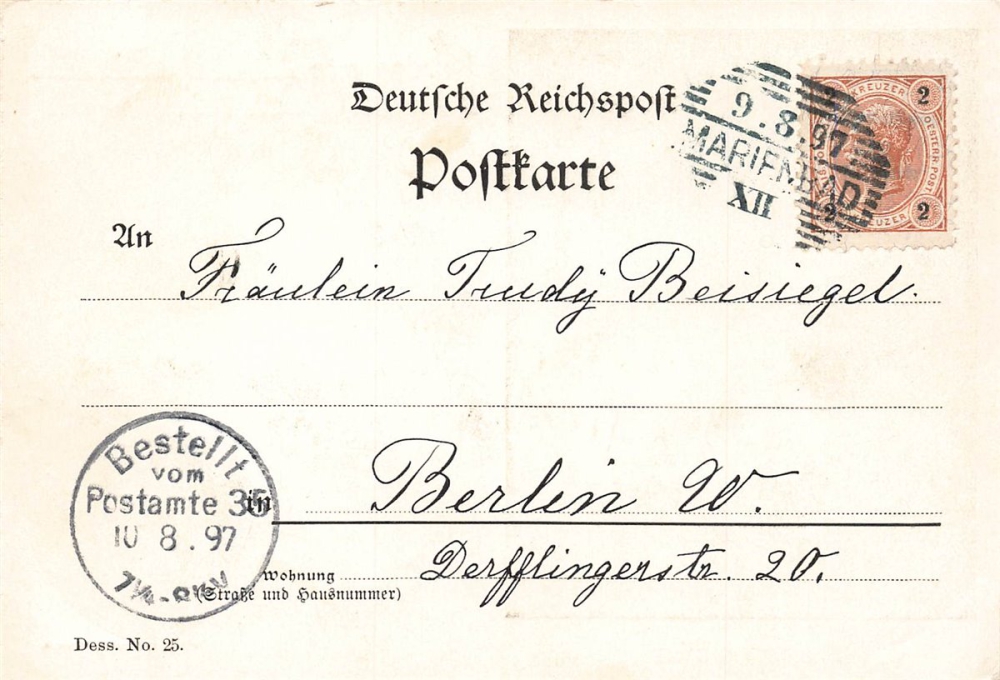 Deutsche Reichspost
Postkarte
9.8.97
MARIENBAD
XII
2 KREUZER 2
OESTERR. POST.
2 KREUZER 2
An Fräulein Trudy Beisiegel.
Bestellt
vom
Postamte 35
10 8.97
in Berlin W.
Wohnung Derfflingerstr. 20.
(Straße und Hausnummer)
Dess. No. 25.